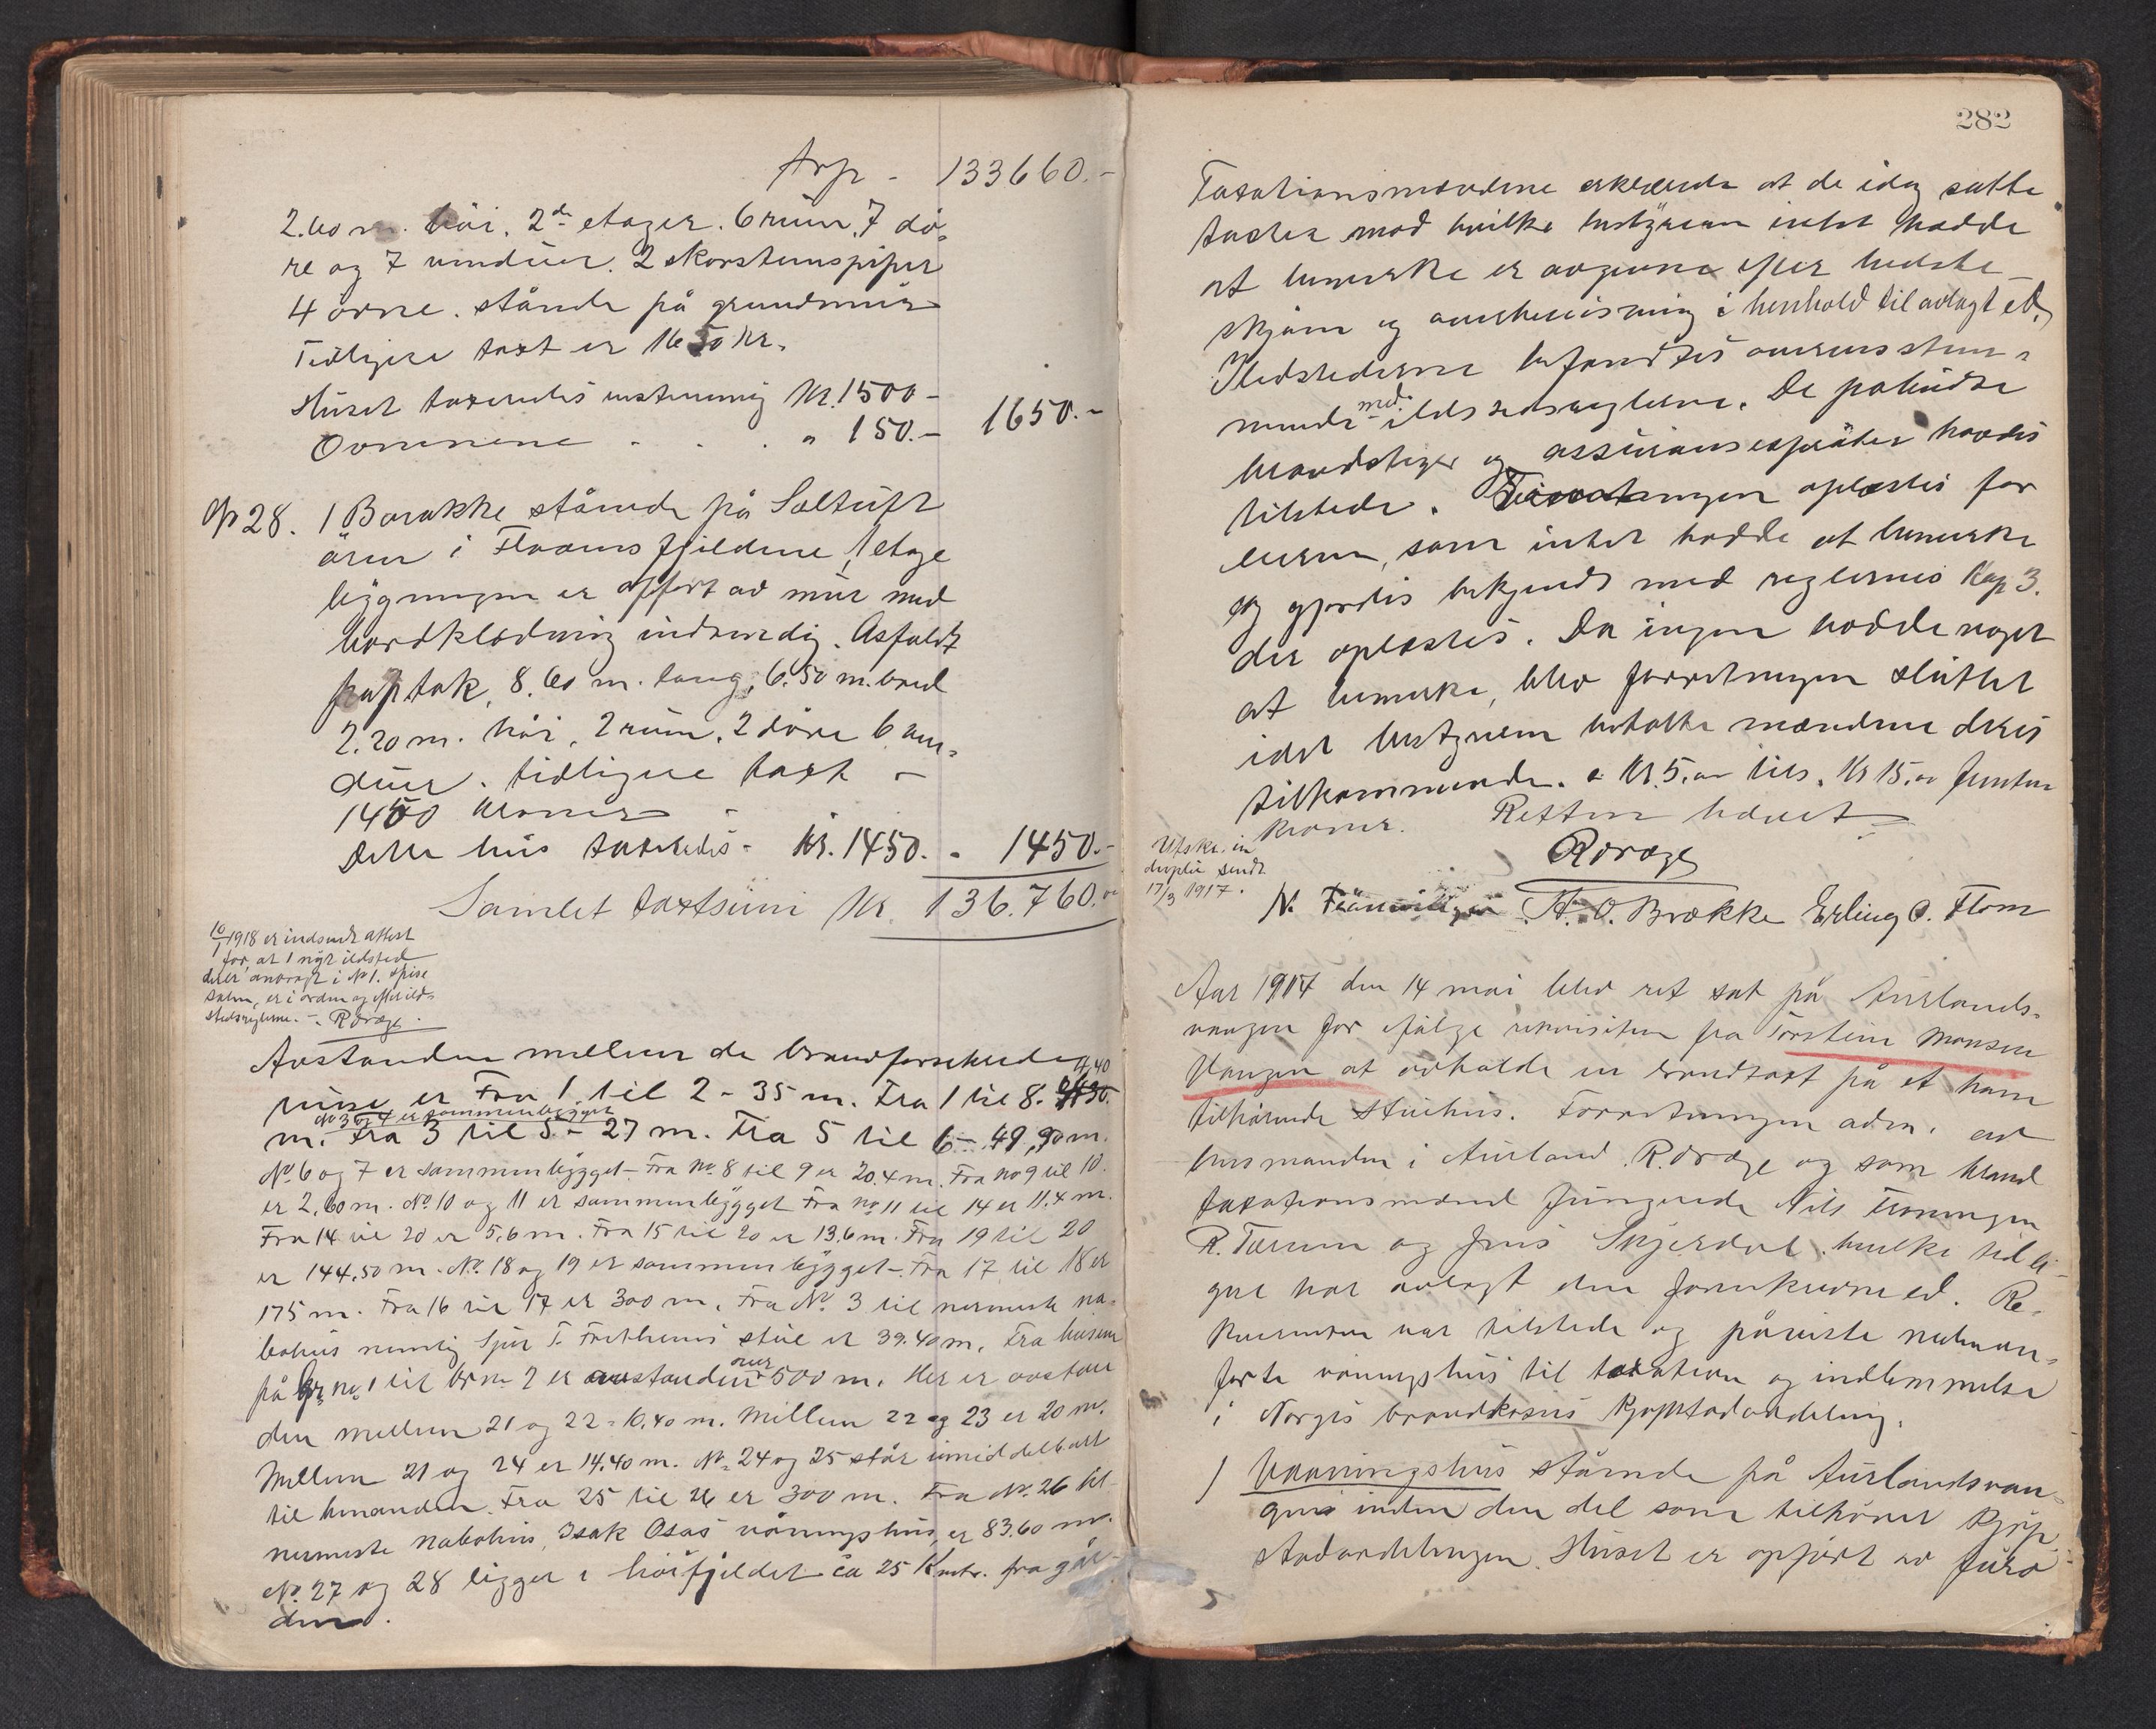 133660.-
2.60 m. høi. 2de etager. 6 rum. 7 dø-
re og 7 vinduer. 2 skorstenspiper
4 ovne. stånde på grundmur
Tidligere taxt er 1650 kr.
Huset taxeredes enstemmig Kr. 1500-
Ovnene . . . " 150.- 1650.-
28. 1 Barakke stående på Seltuft
øren i Flaamsfjeldene, 1 etage
bygningen er opført av mur med
bordklædning indvendig. Asfaldt
paptak, 8.60 m. lang, 6.50 m. bred
2.20 m. høi, 2 rum, 2 døre 6 vin-
duer. tidligere taxt -
1450 kroner -
Dette hus taxeredes - Kr. 1450. - 1450.-
Samlet taxtsum Kr 136.760.oo
10/1 1918 er indsendt attest
for at 1 nyt ildsted
anbragt i No 1. spise
salen, er i orden og efter ild-
stedsreglerne. -
Avstanden mellem de brandforsikrede
huse er Fra 1 til 2 - 35 m. Fra 1 til 8.
No 3 og 4 er sammenbygget
m. Fra 3 til 5 - 27 m. Fra 5 til 6 - 49,90 m.
No 6 og 7 er sammenbygget - Fra No. 8 til 9 er 20.4 m. Fra no 9 til 10.
er 2,60 m. No. 10 og 11 er sammenbygget Fra no 11 til 14 er 11.4 m.
Fra 14 til 20 er 5,6 m. Fra 15 til 20 er 13.6 m. Fra 19 til 20
er 144,50 m. No. 18 og 19 er sammenbygget -. Fra 17 til 18 er
175 m. Fra 16 til 17 er 300 m. Fra No. 3 til nermeste na-
bohus nemlig Sjur T. Fretheims stue er 39.40 m. Fra husene
på br no. 1 til br no 2 er avstanden over 500 m. Her er avstan
den mellem 21 og 22 = 10,40 m. Mellem 22 og 23 er 20 m.
Mellem 21 og 24 er 14.40 m. No. 24 og 25 står umiddelbart
til hinanden. Fra 25 til 26 er 300 m. Fra No. 26 til
nermeste nabohus, Isak Osas våningshus, er 83.60 m.
No. 27 og 28 ligger i høifjeldet ca 25 Kmtr. fra går-
den.
282
Taxationsmændene erklærede at de idag satte
taxter mod hvilke bestyreren intet hadde
at bemerke er avgivne efter bedste
skjøn og overbevisning i henhold til avlagt ed.
Ildstederne befandtes overensstem-
mende med ildstedsreglerne. De påbudne
brandstiger og assuransesprøiter havdes
tilstede. Forretningen oplæstes for
eieren, som intet hadde at bemerke
og gjordes bekjendt med reglernes Kap 3.
der oplæstes. Da ingen hadde noget
at bemerke, blev forretningen sluttet
idet bestyreren betalte mændene deres
tilkommende. a Kr. 5.oo tils. Kr 15.oo femten
kroner. Retten hævet
Utskr. in
duplu sendt
17/3 1917.
A. O. Brække Erling O. Flom
Aar 1917 den 14 mai blev ret sat på Aurlands-
vangen for ifølge rekvisition fra Torstein Monsen
Vangen at avholde en brandtaxt på et ham
tilhørende stuehus. Forretningen adm. av
lensmanden i Aurland R. Dræge og som brand
taxationsmænd fungerede Nils
R. Tærum og Jens Skjerdal. hvilke tidli-
gere har avlagt den foreskrevne ed. Re-
kvirenten var tilstede og påviste nedenan-
førte våningshus til taxation og indlemmelse
i Norges brandkasses Kjøpstadavdeling.
1 Vaaningshus stående på Aurlandsvan-
gen inden den del som tilhører Kjøp
stadavdelingen. Huset er opført av furu